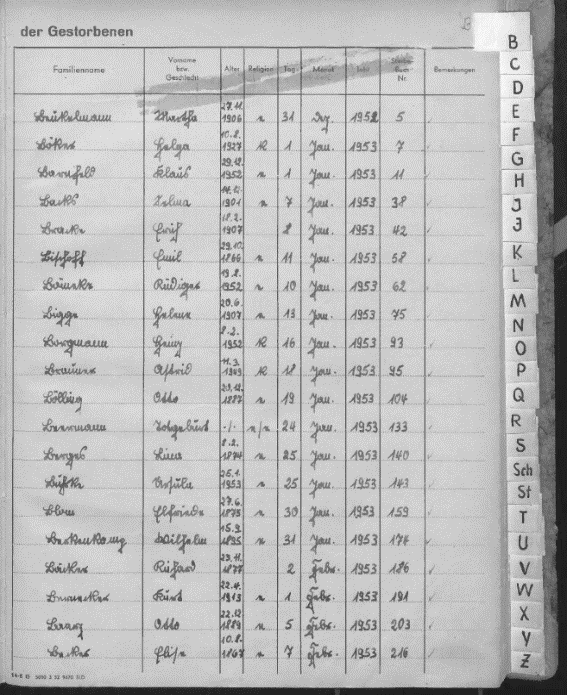 der Gestorbenen
Familienname Vorname bzw. Geschlecht Alter Religion Tag Monat Jahr Sterbe-Buch Nr. Bemerkungen
Beukelmann Martha 27.11. 1906 31 Dez. 1952 5
Böker Helga 10.8. 1927 K 1 Jan. 1953 7
Klaus 29.12. 1952 1 Jan. 1953 11
Backs Selma 1901 7 Jan. 1953 38
Bracke Erich 18.2. 1907 8 Jan. 1953 42
Bischoff Emil 29.10. 1866 11 Jan. 1953 58
Rüdiger 19.8. 1952 10 Jan. 1953 62
Bügge Helene 20.6. 1907 13 Jan. 1953 75
Borgmann Heinz 8.2. 1952 K 16 Jan. 1953 93
Brauner Astrid 11.3. K 18 Jan. 1953 95
Bölling Otto 1887 19 Jan. 1953 104
Beermann Totgeburt ./. 24 Jan. 1953 133
Berges Lina 8.2. 1874 25 Jan. 1953 140
Ursula 25.1. 1953 25 Jan. 1953 143
Blom Elfriede 27.6. 1875 30 Jan. 1953 159
Berkenkamp Wilhelm 15.9. 1895 31 Jan. 1953 174
Böcker Richard 23.11. 1877 2 Febr. 1953 186
Bernecker Kurt 22.4. 1913 1 Febr. 1953 191
Otto 22.12. 1889 5 Febr. 1953 203
Becker Elise 10.8. 1867 7 Febr. 1953 216
B
C
D
E
F
G
H
I
J
K
L
M
N
O
P
Q
R
S
Sch
St
T
U
V
W
X
Y
Z